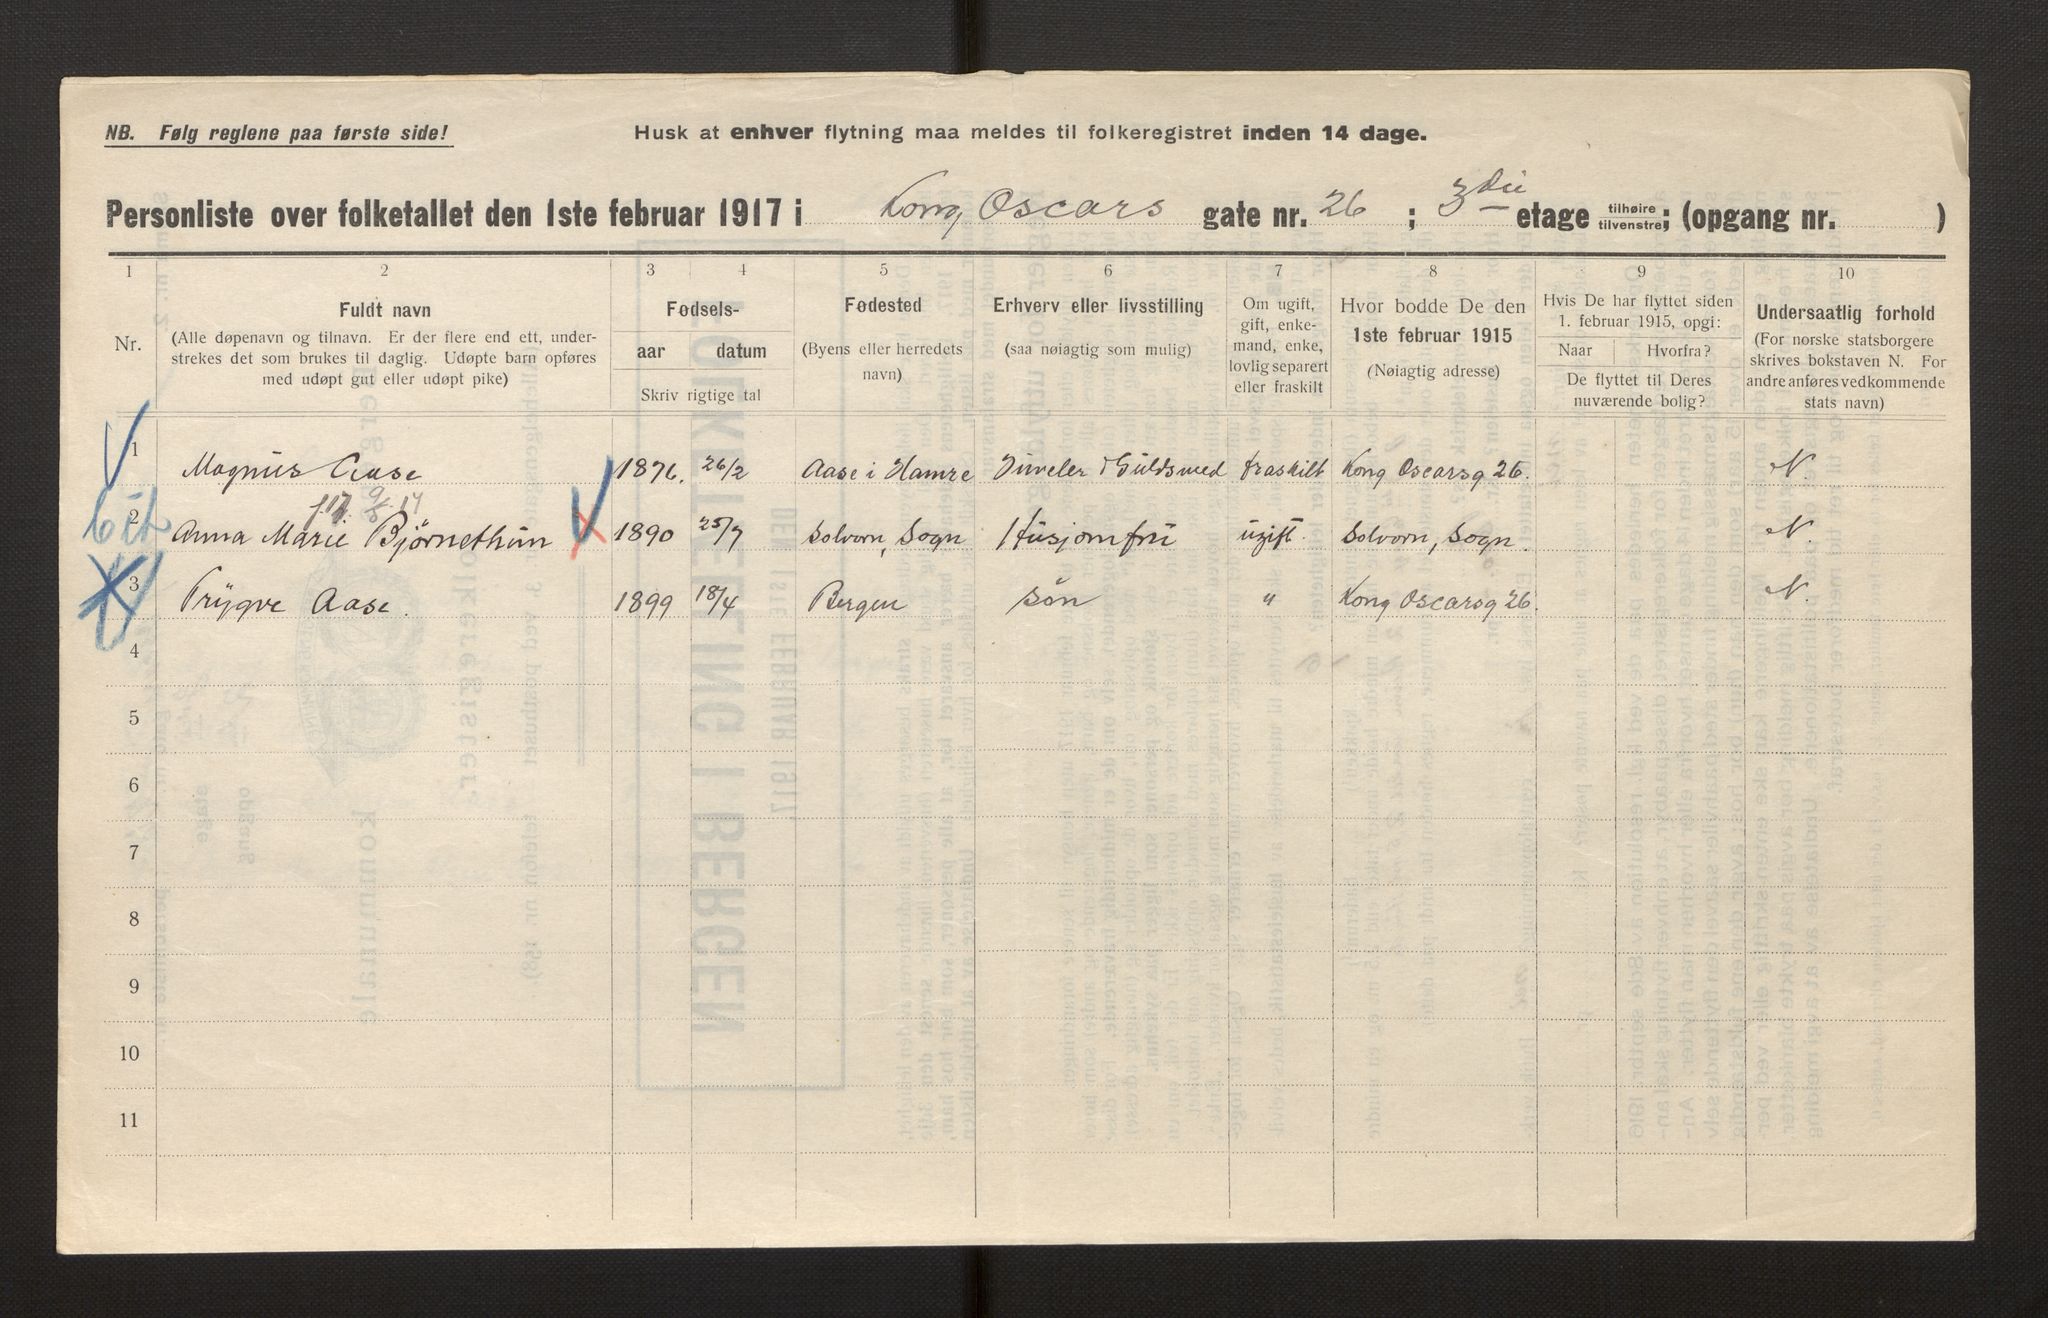 NB. Følg reglene paa første side!
Husk at enhver flytning maa meldes til folkeregistret inden 14 dage.
Personliste over folketallet den 1ste februar 1917 i Kong Oscars gate nr. 26 ; 3die etage tilhøire tilvenstre; (opgang nr. )
1 2 3 4 5 6 7 8 9 10
Nr.
Fuldt navn
(Alle døpenavn og tilnavn. Er der flere end ett, under-
strekes det som brukes til daglig. Udøpte barn opføres
med udøpt gut eller udøpt pike)
Fødsels-
aar datum
Skriv rigtige tal
Fødested
(Byens eller herredets
navn)
Erhverv eller livsstilling
(saa nøiagtig som mulig)
Om ugift,
gift, enke-
mand, enke,
lovlig separert
eller fraskilt
Hvor bodde De den
1ste februar 1915
(Nøiagtig adresse)
Hvis De har flyttet siden
1. februar 1915, opgi:
Naar Hvorfra?
De flyttet til Deres
nuværende bolig?
Undersaatlig forhold
(For norske statsborgere
skrives bokstaven N. For
andre anføres vedkommende
stats navn)
1 Magnus Aase 1876. 26/2 Aase i Hamre Juveler & Guldsmed fraskilt Kong Oscarsg 26. N.
2 Anna Marie Bjørnethun 1890 25/7 Solvorn, Sogn Husjomfru ugift. Solvorn, Sogn. N.
3 Trygve Aase. 1899 18/4 Bergen søn " Kong Oscarsg 26. N.
4
5
6
7
8
9
10
11